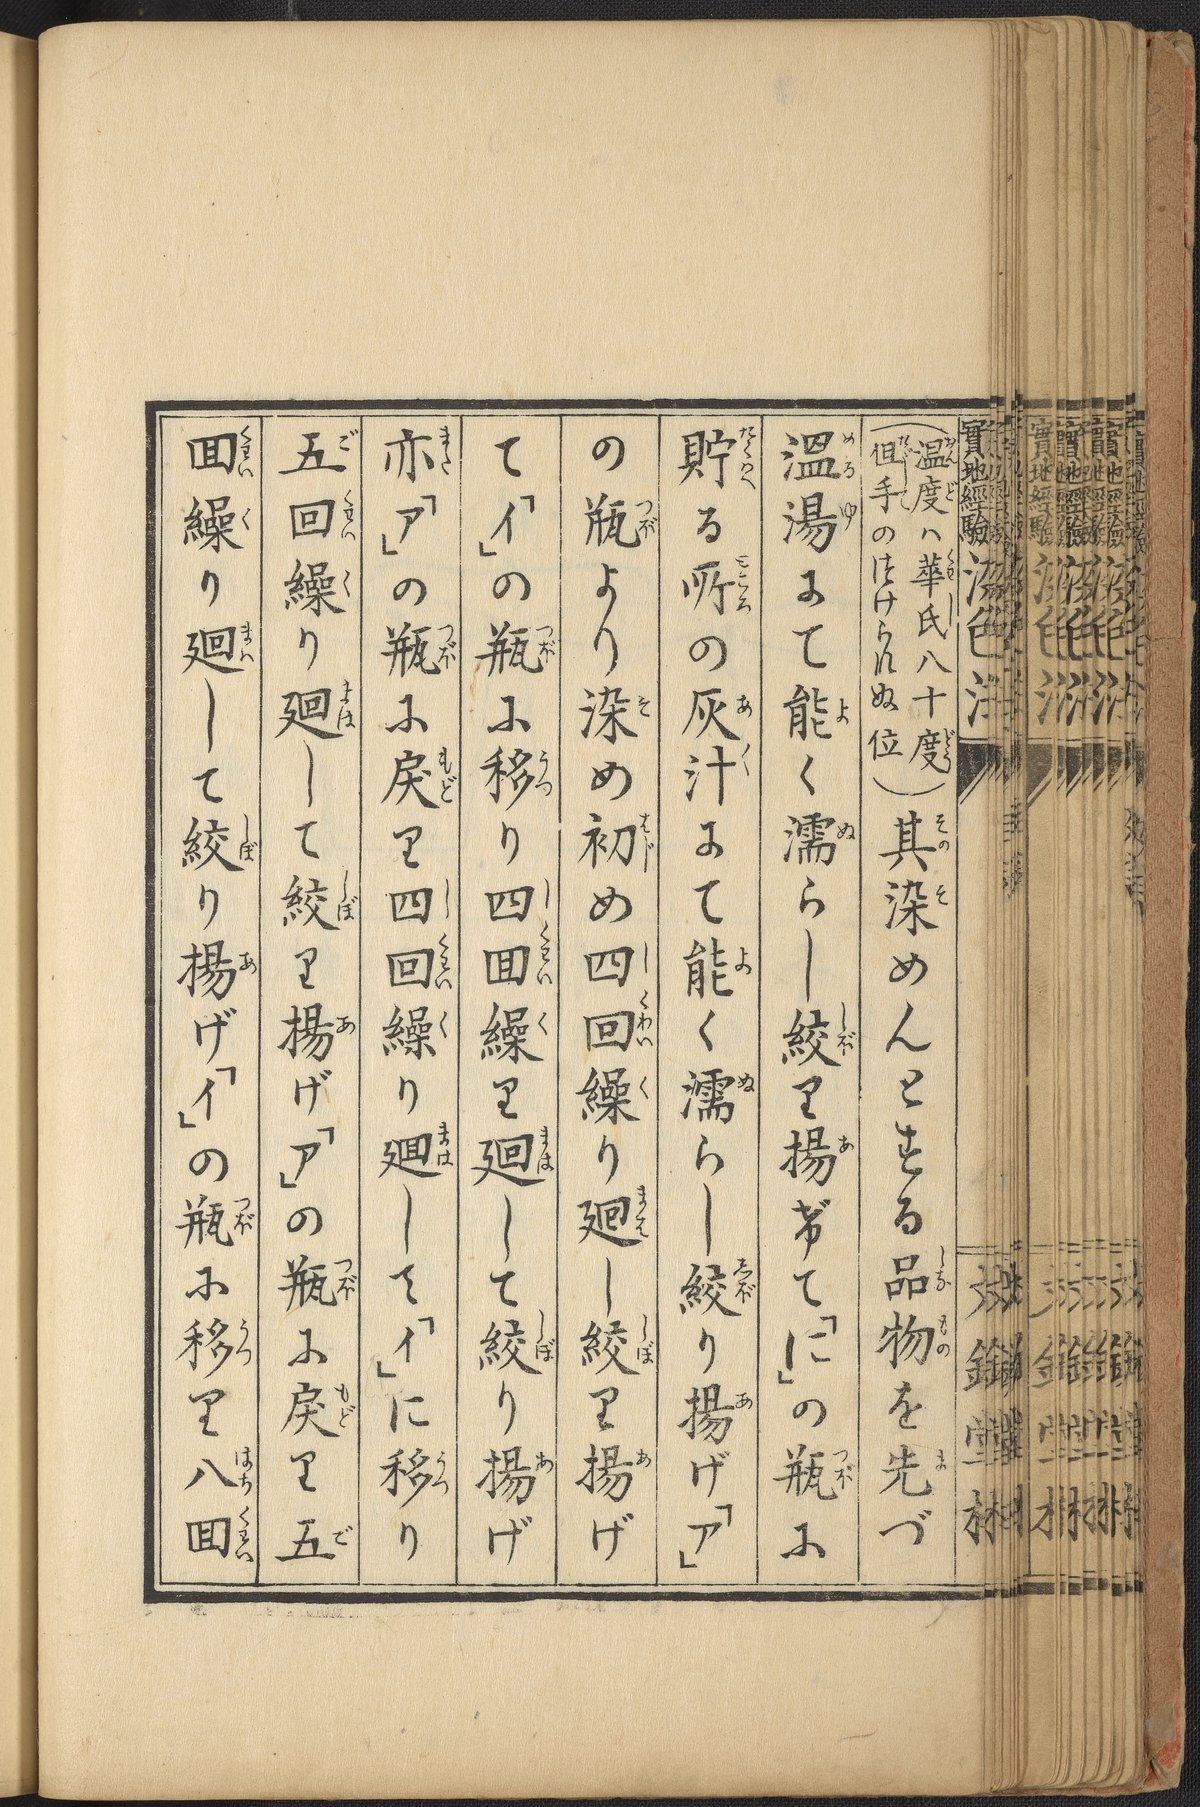 (温度ハ華氏八十度
但手のつけられぬ位)其染めんとする品物を先づ
温湯にて能く濡らし絞り揚げて「に」の瓶に
貯る所の灰汁にて能く濡らし絞り揚げ「ア」
の瓶より染め初め四回繰り廻し絞り揚げ
て「イ」の瓶に移り四回繰り廻して絞り揚げ
亦「ア」の瓶に戻り四回繰り廻して「イ」に移り
五回繰り廻して絞り揚げ「ア」の瓶に戻り五
回繰り廻して絞り揚げ「イ」の瓶に移り八回